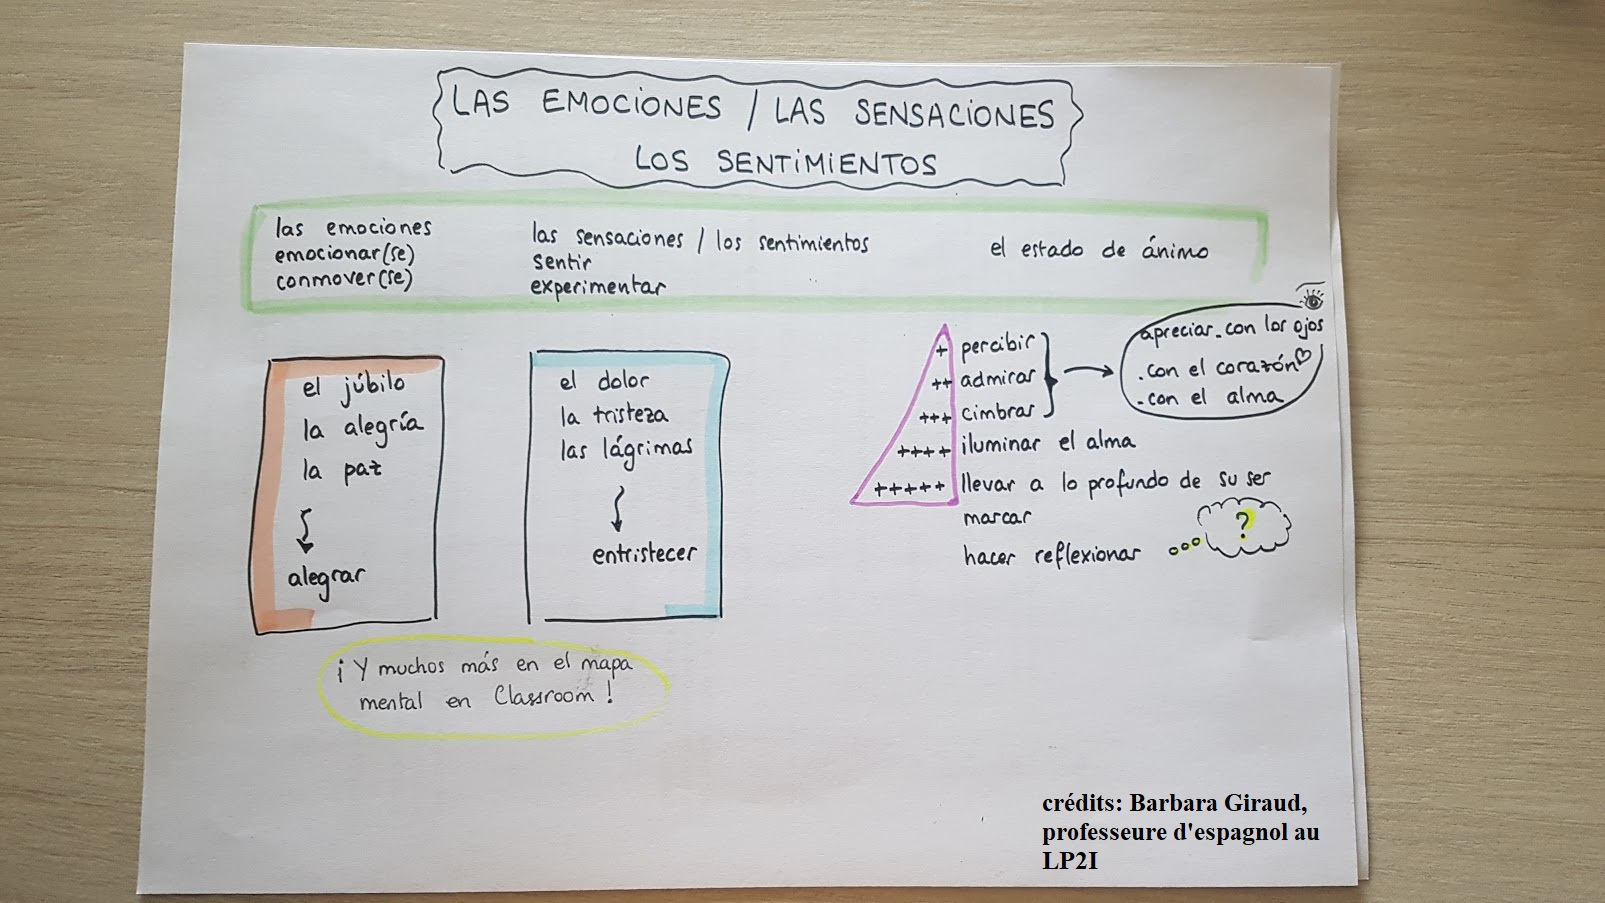 LAS EMOCIONES / LAS SENSACIONES
LOS SENTIMIENTOS
las emociones
emocionar(se)
conmover(se)
las sensaciones / los sentimientos
sentir
experimentar
el estado de ánimo
el júbilo
la alegría
la paz
alegrar
el dolor
la tristeza
las lágrimas
entristecer
+ percibir
++ admirar
+++ cimbrar
++++ iluminar el alma
+++++ llevar a lo profundo de su ser
marcar
hacer reflexionar
?
apreciar. con los ojos
. con el corazón
. con el alma
¡Y muchos más en el mapa
mental en Classroom!
crédits: Barbara Giraud,
professeure d'espagnol au
LP2I